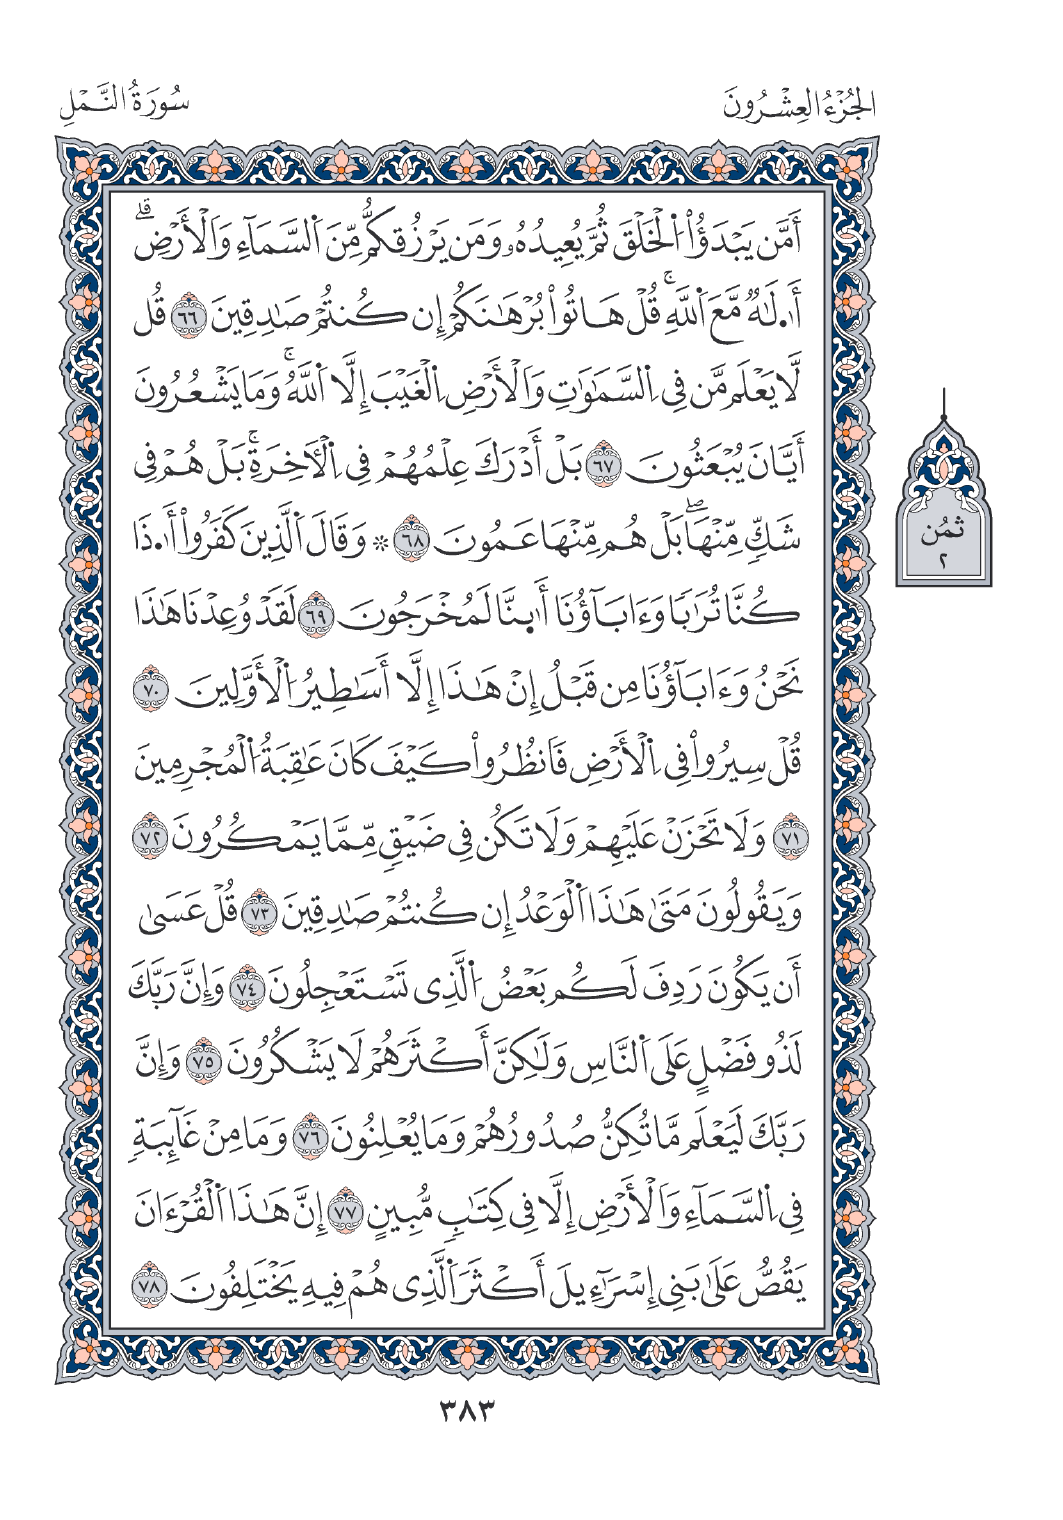 الجُزْءُ العِشْرُونَ
سُورَةُ النَّمْلِ
أَمَّن يَبْدَؤُا۟ اُ۬لْخَلْقَ ثُمَّ يُعِيدُهُۥ وَمَن يَرْزُقُكُم مِّنَ اَ۬لسَّمَآءِ وَالْأَرْضِۗ
أَ.لَٰهٌ مَّعَ اَ۬للَّهِۚ قُلْ هَاتُوا۟ بُرْهَٰنَكُمْ إِن كُنتُمْ صَٰدِقِينَ ٦٦ قُل
لَّا يَعْلَم مَّن فِى اِ۬لسَّمَٰوَٰتِ وَالْأَرْضِ اِ۬لْغَيْبَ إِلَّا اَ۬للَّهُۚ وَمَا يَشْعُرُونَ
أَيَّانَ يُبْعَثُونَ ٦٧ بَلْ أَدْرَكَ عِلْمُهُمْ فِى اِ۬لْأَخِرَةِۚ بَلْ هُمْ فِى
شَكٍّ مِّنْهَاۖ بَلْ هُم مِّنْهَا عَمُونَ ٦٨ ۞ وَقَالَ اَ۬لَّذِينَ كَفَرُوا۟ أَ.ذَا
كُنَّا تُرَٰبًا وَءَابَآؤُنَا أَ.نَّا لَمُخْرَجُونَ ٦٩ لَقَدْ وُعِدْنَا هَٰذَا
نَحْنُ وَءَابَآؤُنَا مِن قَبْلُ إِنْ هَٰذَا إِلَّا أَسَٰطِيرُ اُ۬لْأَوَّلِينَ ٧٠
قُلْ سِيرُوا۟ فِى اِ۬لْأَرْضِ فَانظُرُوا۟ كَيْفَ كَانَ عَٰقِبَةُ اُ۬لْمُجْرِمِينَ
٧١ وَلَا تَحْزَنْ عَلَيْهِمْ وَلَا تَكُن فِى ضَيْقٍ مِّمَّا يَمْكُرُونَ ٧٢
وَيَقُولُونَ مَتَىٰ هَٰذَا اَ۬لْوَعْدُ إِن كُنتُمْ صَٰدِقِينَ ٧٣ قُلْ عَسَىٰ
أَن يَكُونَ رَدِفَ لَكُم بَعْضُ اُ۬لَّذِى تَسْتَعْجِلُونَ ٧٤ وَإِنَّ رَبَّكَ
لَذُو فَضْلٍ عَلَى اَ۬لنَّاسِ وَلَٰكِنَّ أَكْثَرَهُمْ لَا يَشْكُرُونَ ٧٥ وَإِنَّ
رَبَّكَ لَيَعْلَم مَّا تُكِنُّ صُدُورُهُمْ وَمَا يُعْلِنُونَ ٧٦ وَمَا مِنْ غَآئِبَةٍ
فِى اِ۬لسَّمَآءِ وَالْأَرْضِ إِلَّا فِى كِتَٰبٍ مُّبِينٍ ٧٧ إِنَّ هَٰذَا اَ۬لْقُرْءَانَ
يَقُصُّ عَلَىٰ بَنِى إِسْرَآءِيلَ أَكْثَرَ اَ۬لَّذِى هُمْ فِيهِ يَخْتَلِفُونَ ٧٨
ثُمُن
٢
٣٨٣